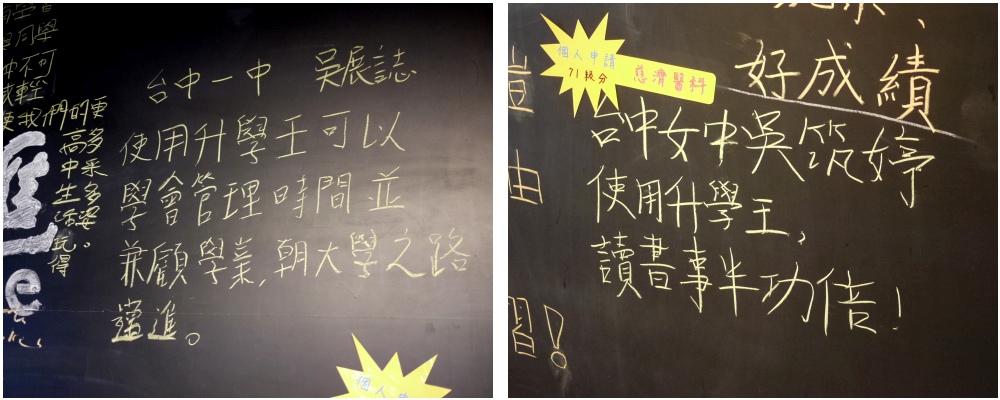 同學
不可
輕
我們的
高中生活玩得
更多采多姿。
台中一中 吳展誌
使用升學王可以
學會管理時間並
兼顧學業,朝大學之路
邁進。
個人申
好成績
個人申請
71級分
慈濟醫科
台中女中吳筑婷
使用升學王,
讀書事半功倍!
由
習!